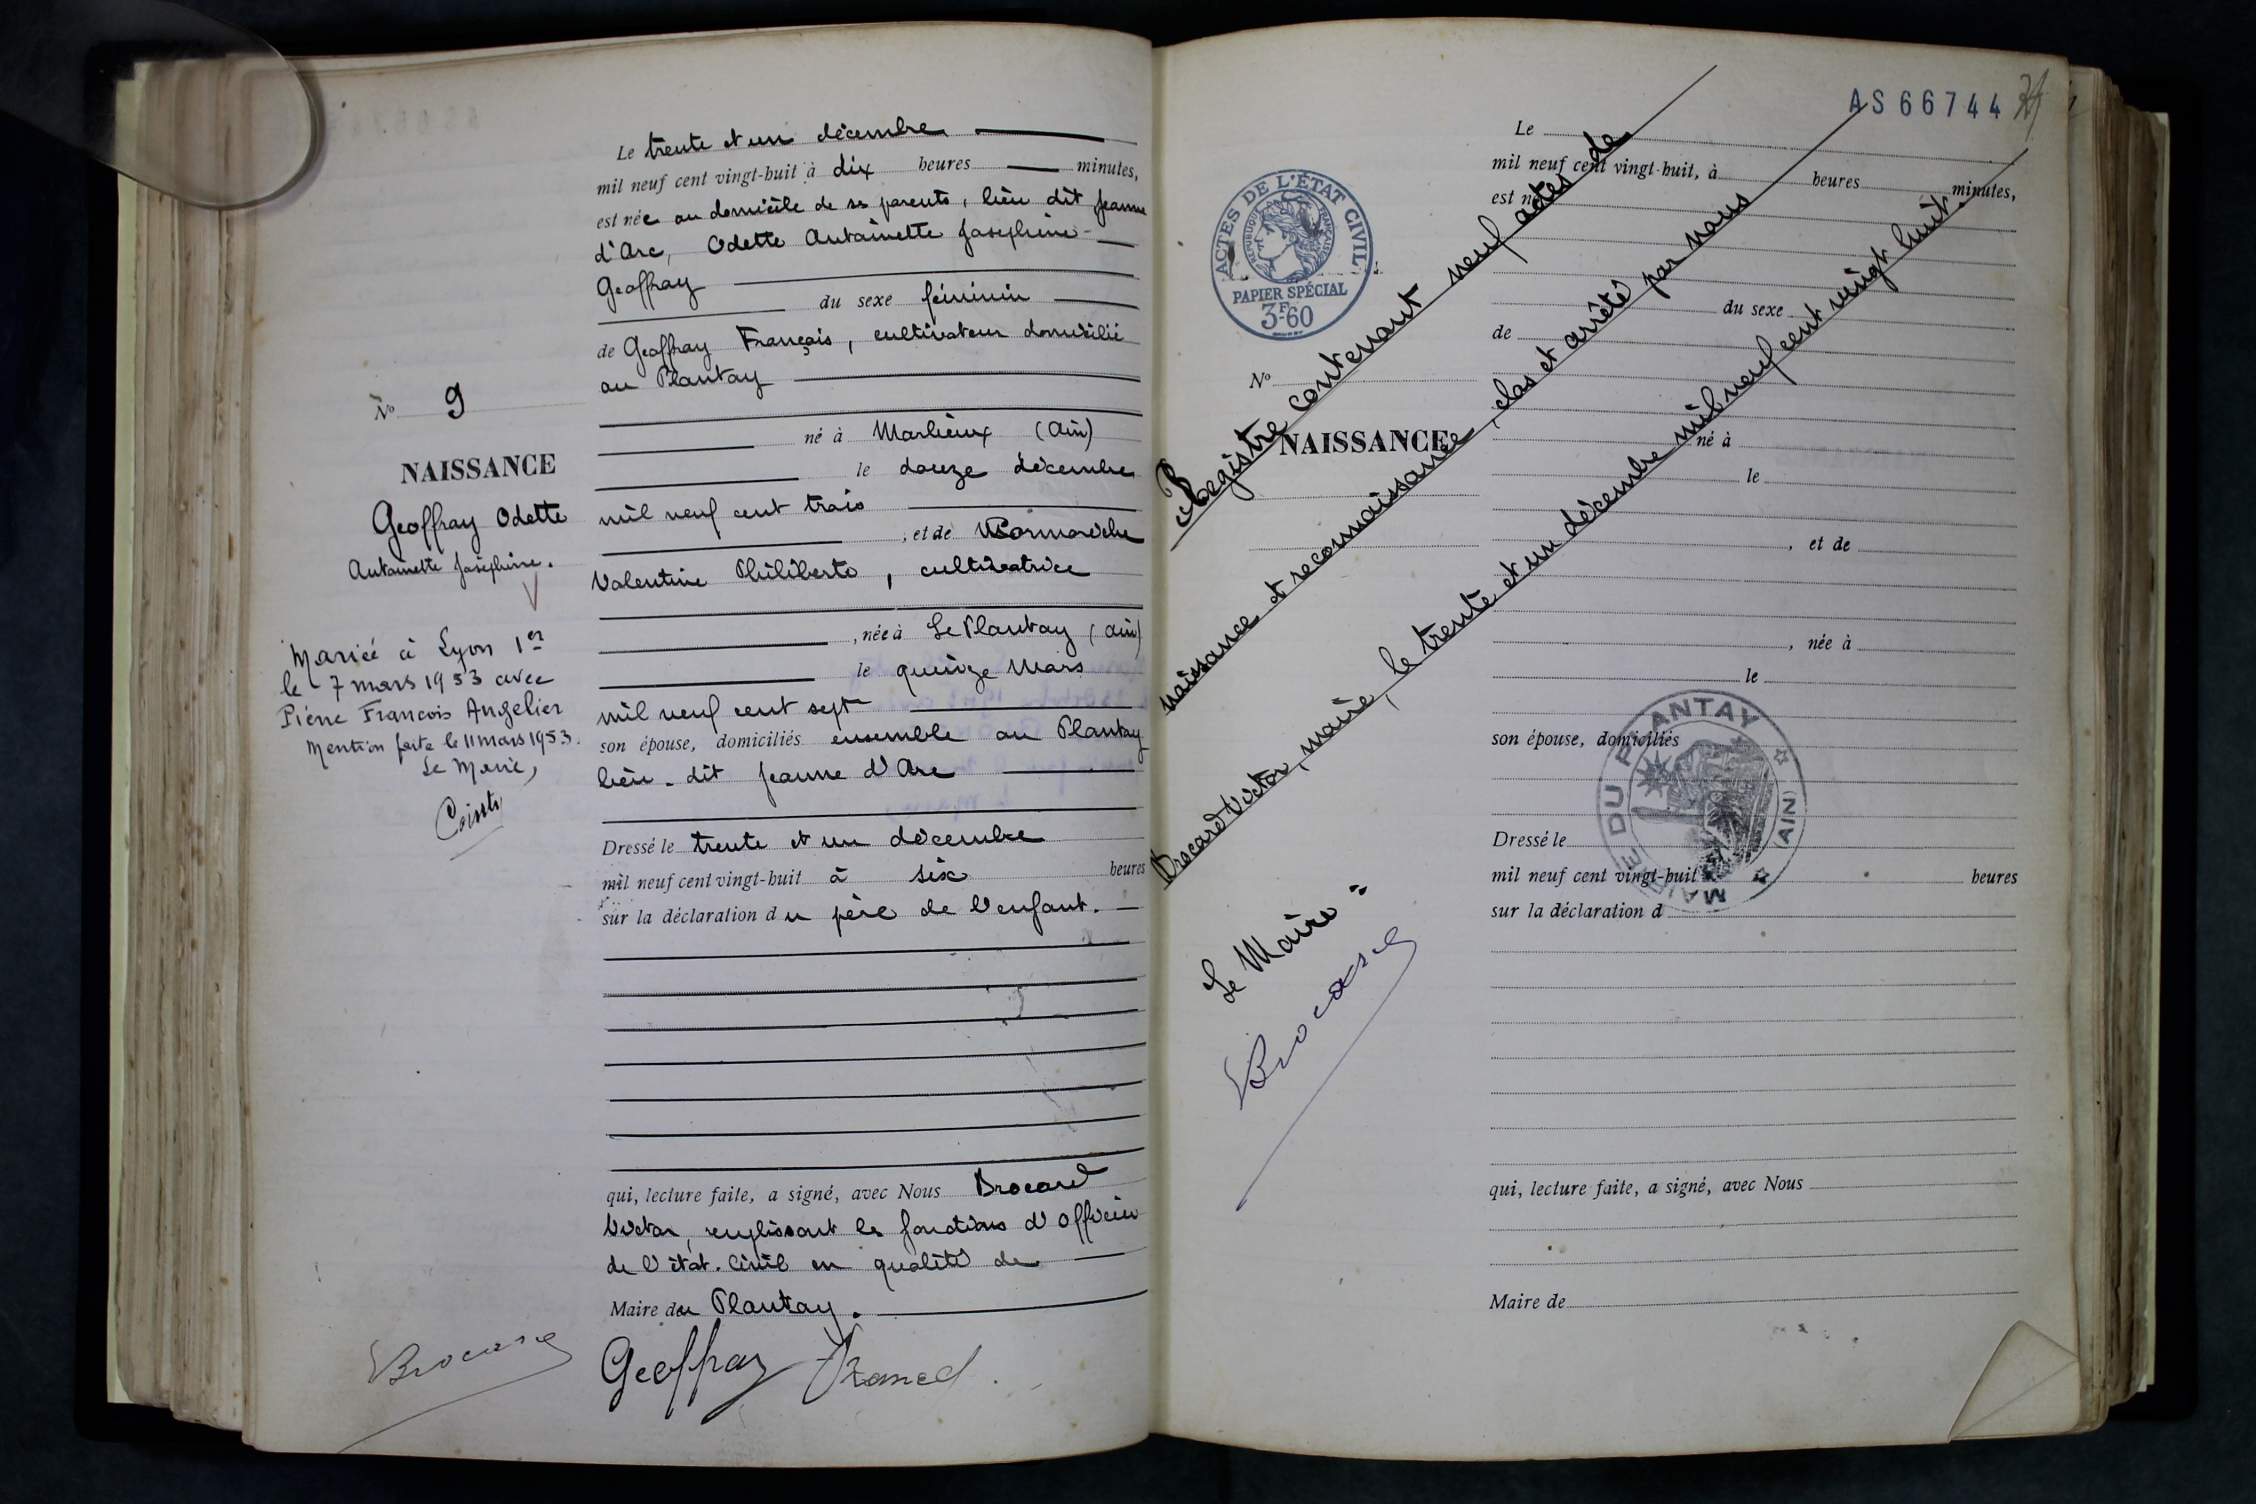 Le trente et un décembre
mil neuf cent vingt-huit à dix heures minutes,
est née au domicile de ses parents, lieu dit Jeanne
d'Arc, Odette Antoinette Joséphine
Geoffray
du sexe féminin
de Geoffray François, cultivateur domicilié
au Plantay
né à Marlieux (Ain)
le douze décembre
mil neuf cent trois
, et de
Valentine Philiberte, cultivatrice
, née à Le Plantay (Ain)
le quinze Mars
mil neuf cent sept
son épouse, domiciliés ensemble au Plantay
lieu-dit Jeanne d'Arc
Dressé le trente et un décembre
mil neuf cent vingt-huit à six heures
sur la déclaration du père de l'enfant.
qui, lecture faite, a signé, avec Nous Brocard
Victor, remplissant les fonctions d'officier
de l'état-civil en qualité de
Maire du Plantay.
Brocard
Geoffray
N° 9
NAISSANCE
Geoffray Odette
Antoinette Joséphine.
Mariée à Lyon 1er
le 7 mars 1953 avec
Pierre François Angelier
Mention faite le 11 mars 1953.
Le Maire,
AS 66744
ACTES DE L'ÉTAT CIVIL
RÉPUBLIQUE FRANÇAISE
PAPIER SPÉCIAL
3F60
N°
NAISSANCE
Le
mil neuf cent vingt-huit, à heures minutes,
est né
du sexe
de
né à
le
, et de
, née à
le
son épouse, domiciliés
Dressé le
mil neuf cent vingt-huit heures
sur la déclaration d
qui, lecture faite, a signé, avec Nous
Maire de
Registre contenant neuf actes de
naissance et reconnaissance, clos et arrêté par nous
Brocard Victor, maire, le trente et un décembre mil neuf cent vingt huit.
Le Maire :
Brocard
MAIRIE DU PLANTAY
(AIN)